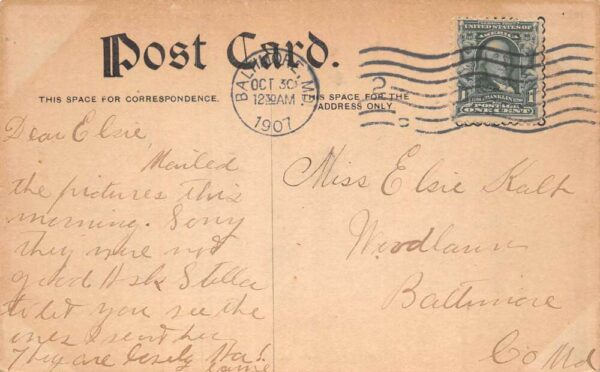 Post Card.
BALTIMORE, MD.
OCT 30
12 30 AM
1907
UNITED STATES OF
AMERICA
FRANKLIN
POSTAGE
1 ONE CENT 1
THIS SPACE FOR CORRESPONDENCE.
THIS SPACE FOR THE
ADDRESS ONLY
Dear Elsie
Mailed
the pictures this
morning. Sorry
they were not
good Ask Stella
to let you see the
ones I sent her
They are
Miss Elsie Kalb
Woodlawn
Baltimore
Co Md